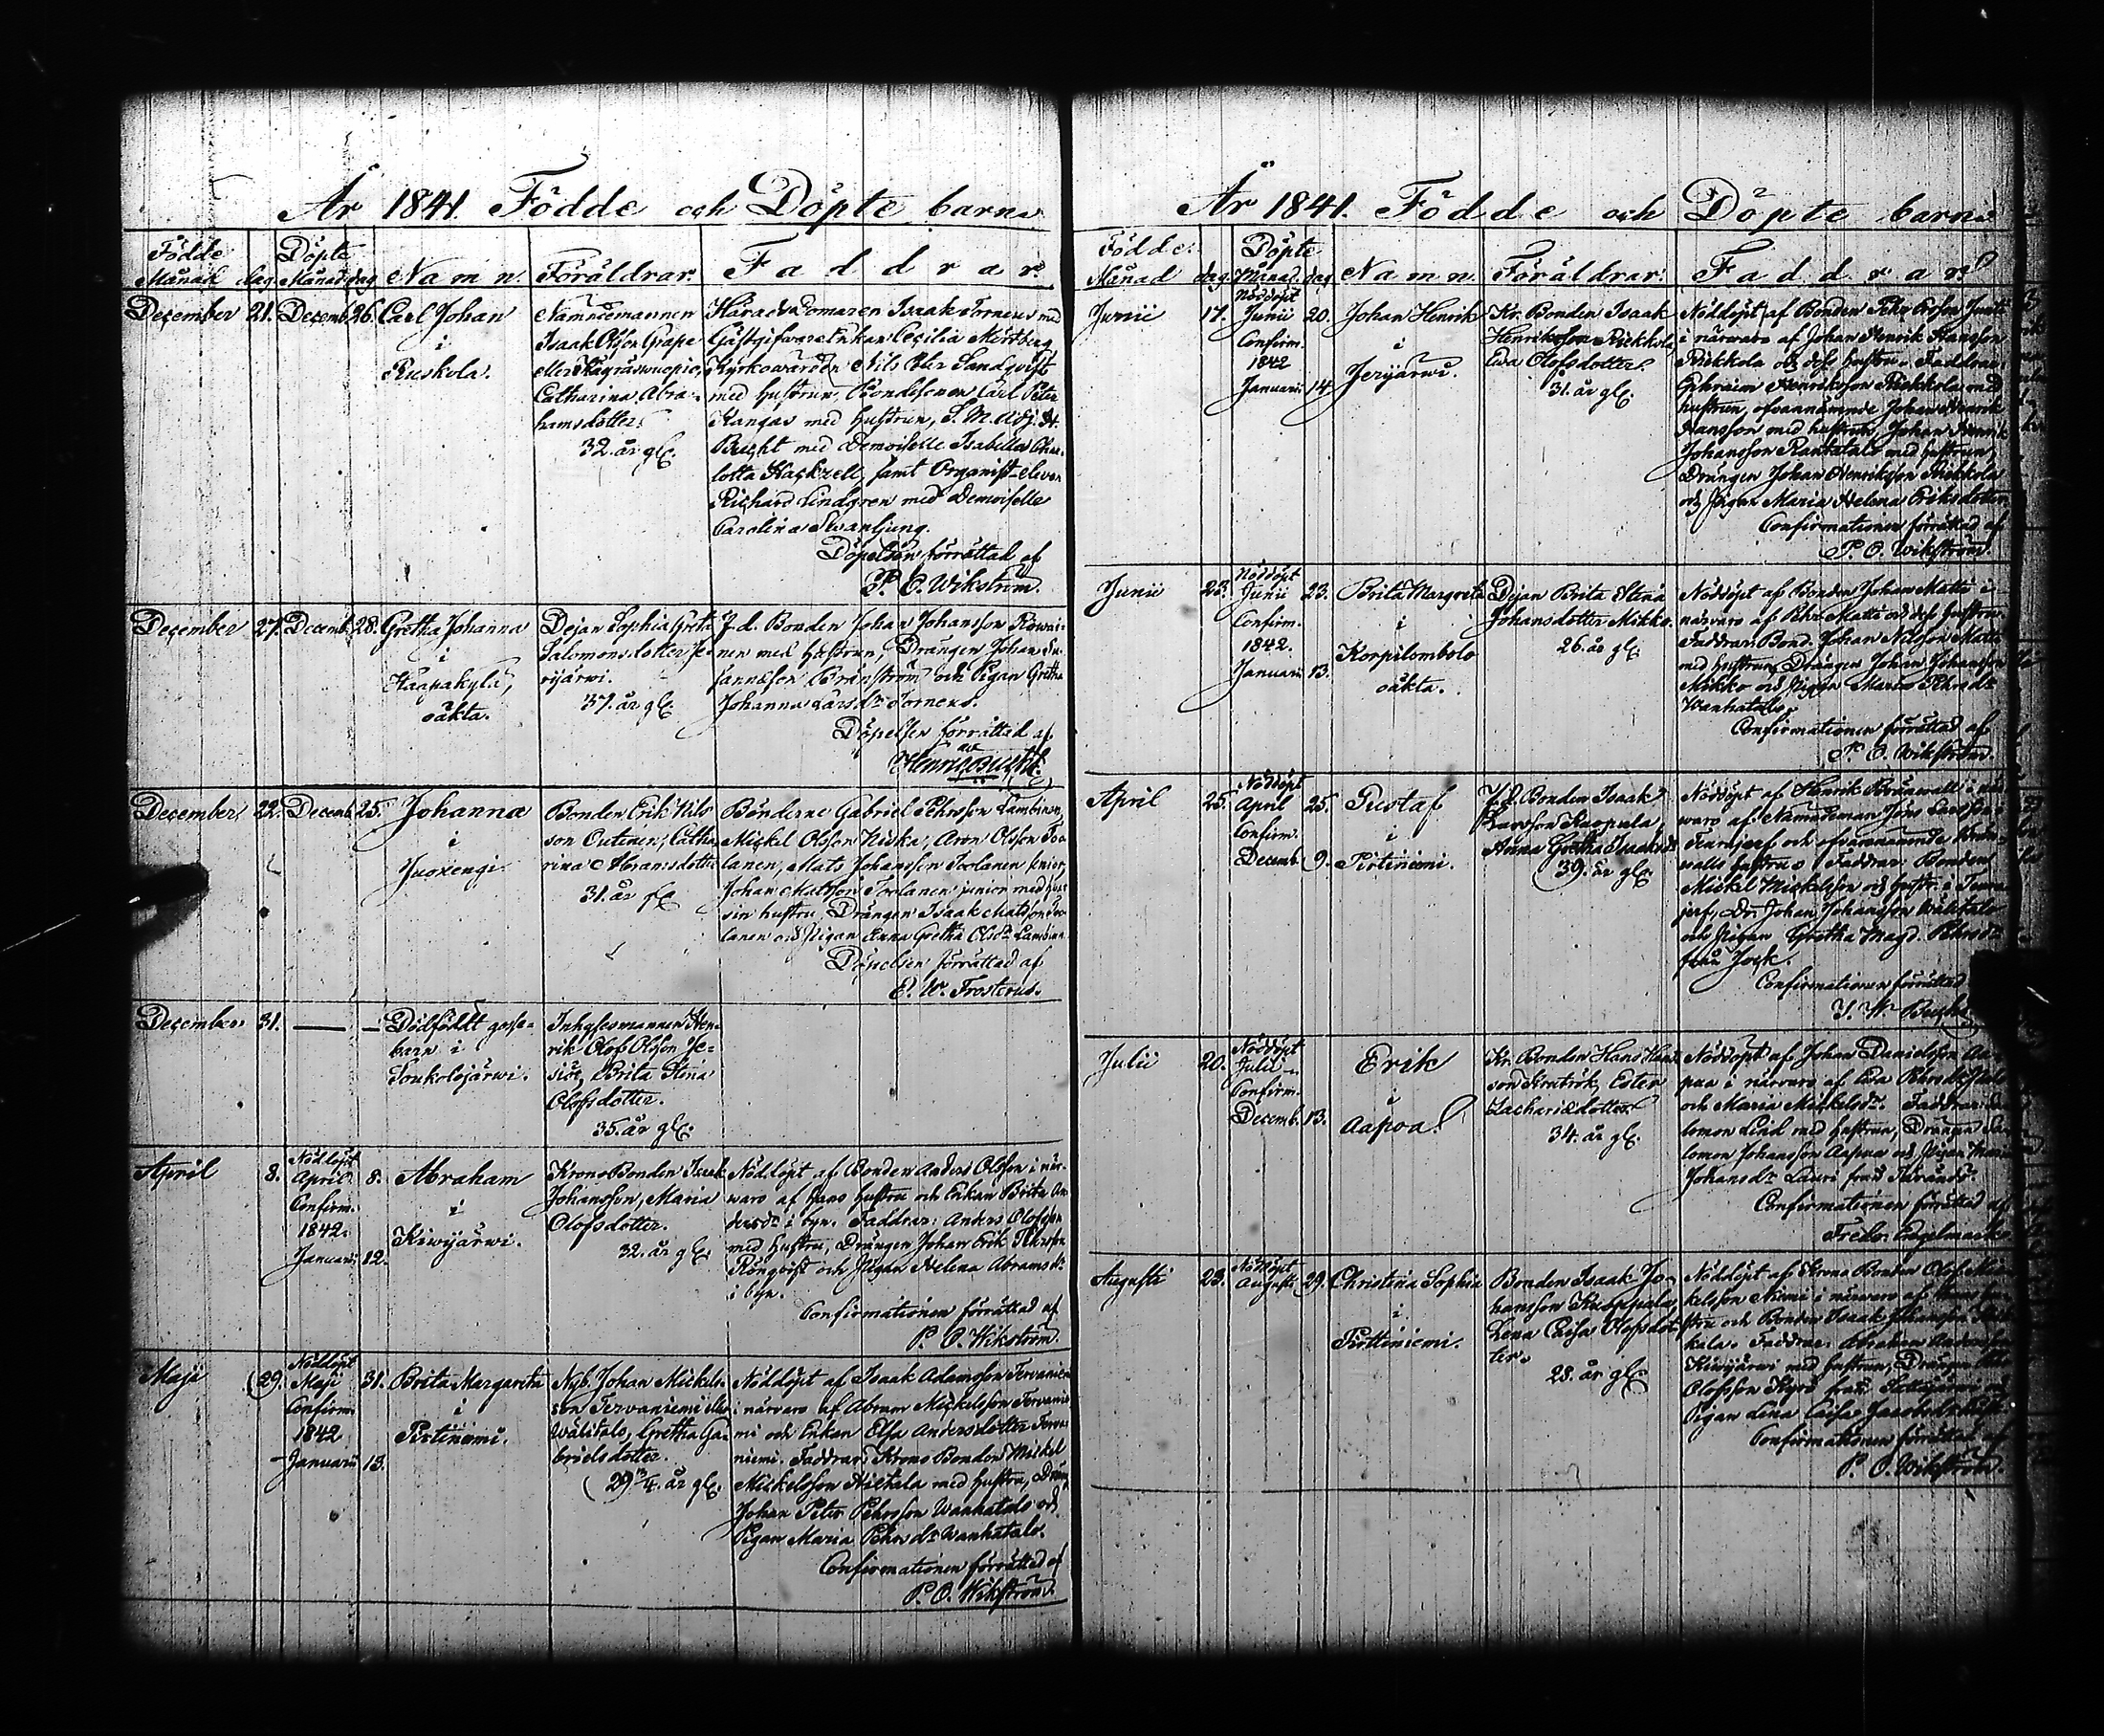 År 1841. Födde och Döpte barn
Födde Döpte
Månad dag Månad dag Namn. Föräldrar. Faddrar
December 21. Decemb 26. Carl Johan
i
Ruskola.
Nämndemannen
Isaak Olsson Grape
eller
Catharina Abra-
hamsdotter.
32. år gl.
Häradsdomaren Isaak Torneus med
Gästgifvare Enkan Cecilia
Kyrkowärden Nils Sandqvist
med hustrun, Bondesonen Carl Peter
Kangas med hustrun, S. M. Adj. H.
Bucht med Demoiselle Isabella Char-
lotta Hackzell, samt Organist-eleven
Richard Lindgren med Demoiselle
Carolina Swanljung.
Döpelsen förrättad af
P. O. Wikström.
December 27. Decemb. 28. Gretha Johanna
i
Haapakylä,
oäkta.
Dejan Sophia Greta
Salomonsdotter
37. år gl.
F. d. Bonden Johan Johansson
nen med hustrun, Drängen Johan
Brännström och Pigan Gretha
Johanna Larsdr Torneus.
Döpelsen förrättad af
Henric Bucht.
December 22. Decemb 25. Johanna
i
Juoxengi
Bonden Erik Nils
son Outinen, Catha
rina Abramsdotter
31. år gl.
Bönderne Gabriel Pehrsson
Mickel Olsson Niska, Aron Olsson
lanen, Mats Johansson Toolanen senior,
Johan Matsson Toolanen junior med
sin hustru, Drängen Isaak Matsson
lanen och Pigan Anna Gretha Olsdr
Döpelsen förrättad af
E. W. Frosterus.
December 31. — — Dödfödt gosse-
barn i
Soukolojärwi.
Inhysesmannen Hen-
rik Olof Olsson
Brita Stena
Olofsdotter.
35. år gl.
April 8. Nöddöpt
April 8.
Confirm.
1842.
Januari 12.
Abraham
i
Kiwijärwi.
Krono Bonden Isaak
Johansson, Maria
Olofsdotter.
32. år gl.
Nöddöpt af Bonden Anders Olsson i när-
waro af hans hustru och Enkan Brita An
dersdr i byn. Faddrar: Anders Olofsson
med hustru, Drängen Johan Erik Pehrsson
Rönqvist och Pigan Helena Abramsdr
i byn.
Confirmationen förrättad af
P. O. Wikström.
Maji 29. Nöddöpt
Maji 31.
Confirm.
1842
Januarii 13.
Brita Margareta
i
Pirtiniemi.
Nyb. Johan Mickels
son Tervaniemi eller
Wälitalo, Gretha Ga
brielsdotter.
29 år gl.
Nöddöpt af Isaak Adamsson Tervaniemi
i närwaro af Abram Mickelsson Tervanie
mi och Enkan Elsa Andersdotter Terva
niemi. Faddrar: Krono Bonden Mickel
Mickelsson Hietala med hustru, Dräng
Johan Peter Pehrsson Wanhatalo och
Pigan Maria Pehrsdr Wanhatalo.
Confirmationen förrättad af
P. O. Wikström.
År 1841. Födde och Döpte barn
Födde Döpte
Månad dag Månad dag Namn. Föräldrar. Faddrar
Junii 17. Nöddöpt
Junii 20.
Confirm.
1842
Januari 14.
Johan Henrik
i
Jerijärwi.
Kr. Bonden Isaak
Henriksson Rickkola
Ewa Olofsdotter.
31. år gl.
Nöddöpt af Bonden Pehr Ersson
i närwaro af Johan Henrik Hansson
Rickkola och dess hustru. Faddrar:
Ephraim Henriksson Rickkola med
hustrun, ofvannämnde Johan Henrik
Hansson med hustrun, Johan Henrik
Johansson Rantatalo med hustrun,
Drängen Johan Henriksson Rickkola
och Pigan Maria Helena Eriksdotter
Confirmationen förrättad af
P. O. Wikström.
Junii 23. Nöddöpt
Junii 23.
Confirm.
1842.
Januari 13.
Brita Margreta
i
Korpilombolo
oäkta.
Dejan Brita Stina
Johansdotter Mikko.
26. år gl.
Nöddöpt af Bonden Johan Matti i
närvaro af Pehr Matti och dess hustru.
Faddrar: Bond. Johan Nilsson Matti
med hustrun, Drängen Johan Johansson
Mikko och Pigan Maria Pehrsdr
Wanhatalo.
Confirmationen förrättad af
P. O. Wikström.
April 25. Nöddöpt
April 25.
Confirm.
Decemb. 9.
Gustaf
i
Pirtiniemi.
Bonden Isaak
Larsson Kuoppala
Anna Gretha Isaaksdr
39. år gl.
Nöddöpt af Henrik Brännvall i när
waro af Nämndeman Jöns
och ofvannämnde Brän
valls hustru. Faddrar: Bonden
Mickel Mickelsson och hustru i
jerf, Dr. Johan Johansson Wälitalo
och Pigan Gretha Magd. Pehrsdr
från Jock.
Confirmationen förrättad
Bucht
Julii 20. Nöddöpt
Julii
Confirm.
Decemb. 13.
Erik
i
Aapoa.
Kr. Bonden Hans Hans
son Ester
Zachariædotter
34. år gl.
Nöddöpt af Johan Danielsson Aa
pua i närvaro af Ewa Pehrsdr
och Maria Mickelsdr. Faddrar: Sa
lomon Lind med hustrun, Drängen Sa
lomon Johansson Aapua och Pigan Maria
Johansdr Lauri från
Confirmationen förrättad af
Fredr. Engelmark
Augusti 23. Nöddöpt
Augusti 29.
Christina Sophia
i
Pirttiniemi.
Bonden Isaak Jo-
hansson Kuoppala,
Lena Caisa Olofsdot
ter.
28. år gl.
Nöddöpt af Krono Bonden Olof Mic
kelsson Niemi i närwaro af
och Bonden Isaak Johansson
Faddrar: Abraham Andersson
Kiwijärwi med hustrun, Drängen
Olofsson Kyrö från Sattajärwi och
Pigan Lena Caisa Jacobsdotter
Confirmationen förrättad af
P. O. Wikström